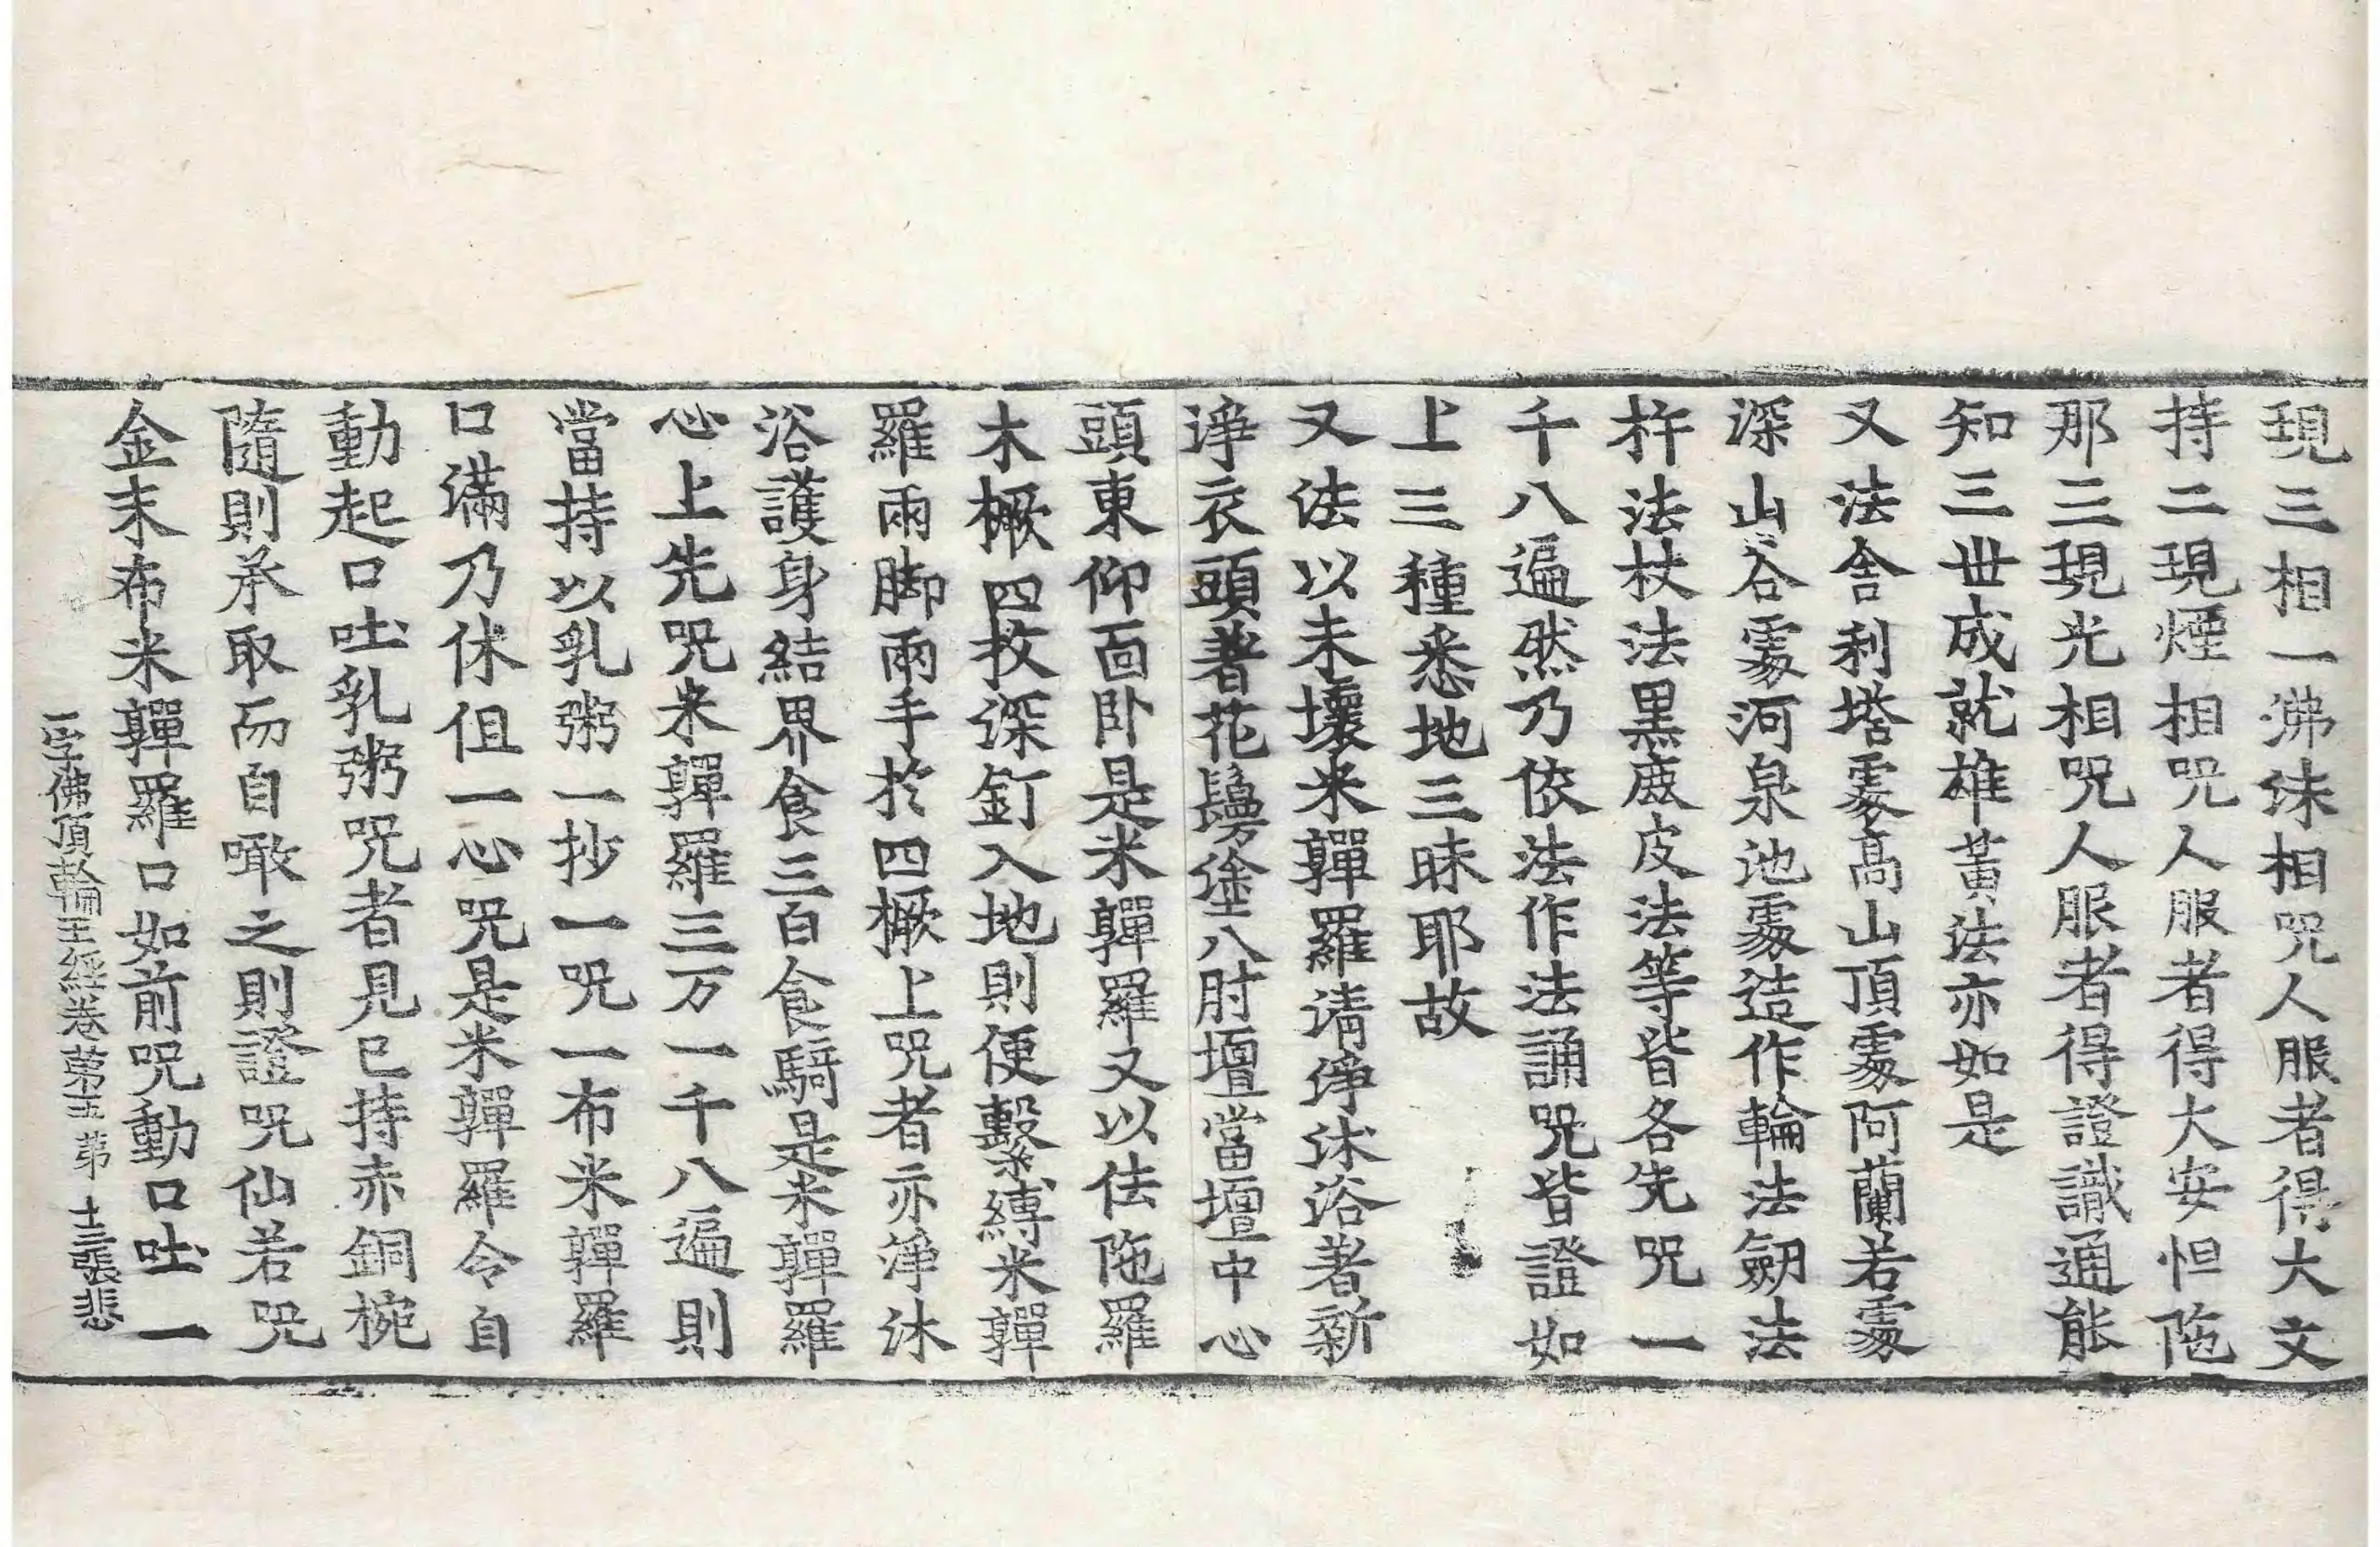 現三相一沸沫相咒人服者得大文
持二現煙相咒人服者得大安怛陁
那三現光相咒人服者得證識通能
知三世成就雄黃法亦如是
又法舍利塔䖏髙山頂䖏阿蘭若䖏
深山谷䖏河泉池䖏造作輪法劒法
杵法杖法黒鹿皮法等皆各先咒一
千八遍然乃依法作法誦咒皆證如
上三種悉地三昧耶故
又法以未壞米䩥羅清淨沐浴著新
淨衣頭著花鬘塗八肘壇當壇中心
頭東仰面卧是米䩥羅又以佉陁羅
木橛四枚深釘入地則便繫縛米䩥
羅兩脚兩手於四橛上咒者亦淨沐
浴護身結界食三白食騎是米䩥羅
心上先咒米䩥羅三万一千八遍則
當持以乳粥一抄一咒一布米䩥羅
口滿乃休但一心咒是米䩥羅令自
動起口吐乳粥咒者見已持赤銅椀
隨則承取而自噉之則證咒仙若咒
金末布米䩥羅口如前咒動口吐一
一字佛頂輪王經卷第五 第十三張 悲